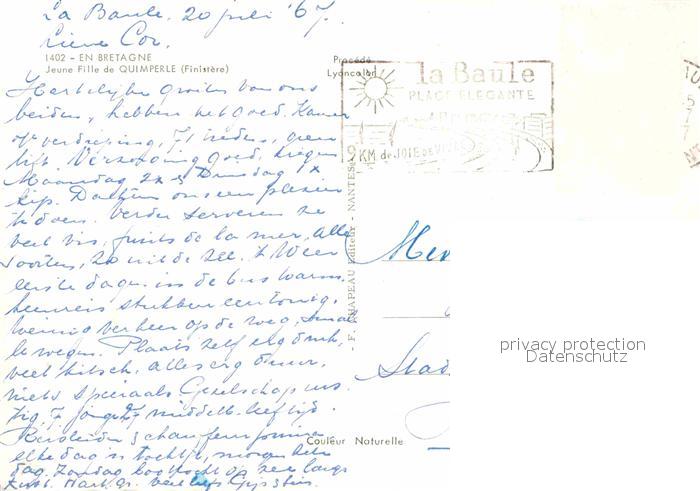 La Baule, 20 juli '67.
Lieve Cor.
1402 - EN BRETAGNE
Jeune Fille de QUIMPERLE (Finistère)
Procédé
Lyoncolor
la Baule
PLAGE ELEGANTE
KM de JOIE de VIVRE
Hartelijke groeten van ons
beiden, hebben het goed. Kamer
op verdieping, 71 treden, geen
lift. Verzorging goed, kregen
Maandag 2x en Dinsdag 1x
kip. Dachten ons een plezier
te doen. Verder serveren ze
veel vis, fruits de la mer, alle
soorten, zo uit de zee. Weer
eerste dagen in de bus warm.
heenreis stukken eentonig.
Weinig verkeer op de weg, smal
le wegen. Plaats zelf erg druk,
veel kitsch, alles erg duur,
niets speciaals. Gezelschap
7 jonge, 27 middelb. leeftijd.
Reisleider, chauffeur
elke dag is tochtje, morgen hele
dag. Zondag boottocht op zee langs
kust. Hart. gr. veel liefs
F. CHAPEAU Editeur - NANTES
Couleur Naturelle
Mev
Stad
privacy protection
Datenschutz